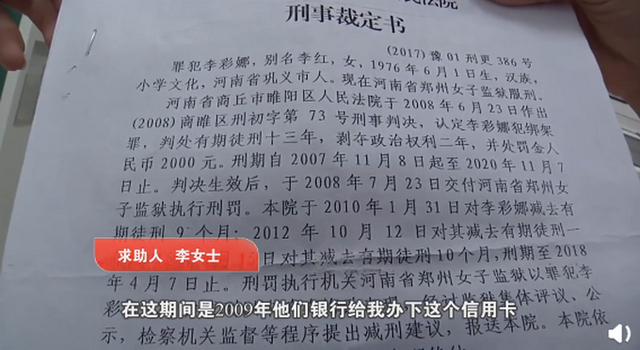 民法院
刑事裁定书
(2017)豫01刑更386号
罪犯李彩娜，别名李红，女，1976年6月1日生，汉族，
小学文化，河南省巩义市人。现在河南省郑州女子监狱服刑。
河南省商丘市睢阳区人民法院于2008年6月23日作出
(2008)商睢区刑初字第73号刑事判决，认定李彩娜犯绑架
罪，判处有期徒刑十三年，剥夺政治权利二年，并处罚金人
民币2000元。刑期自2007年11月8日起至2020年11月7
日止。判决生效后，于2008年7月23日交付河南省郑州女
子监狱执行刑罚。本院于2010年1月31日对李彩娜减去有
期徒刑9个月；2012年10月12日对其减去有期徒刑一
日对其减去有期徒刑10个月，刑期至2018
年4月7日止。刑罚执行机关河南省郑州女子监狱以罪犯李
求助人 李女士
在这期间是2009年他们银行给我办下这个信用卡
示，检察机关监督等程序提出减刑建议，报送本院。本院依